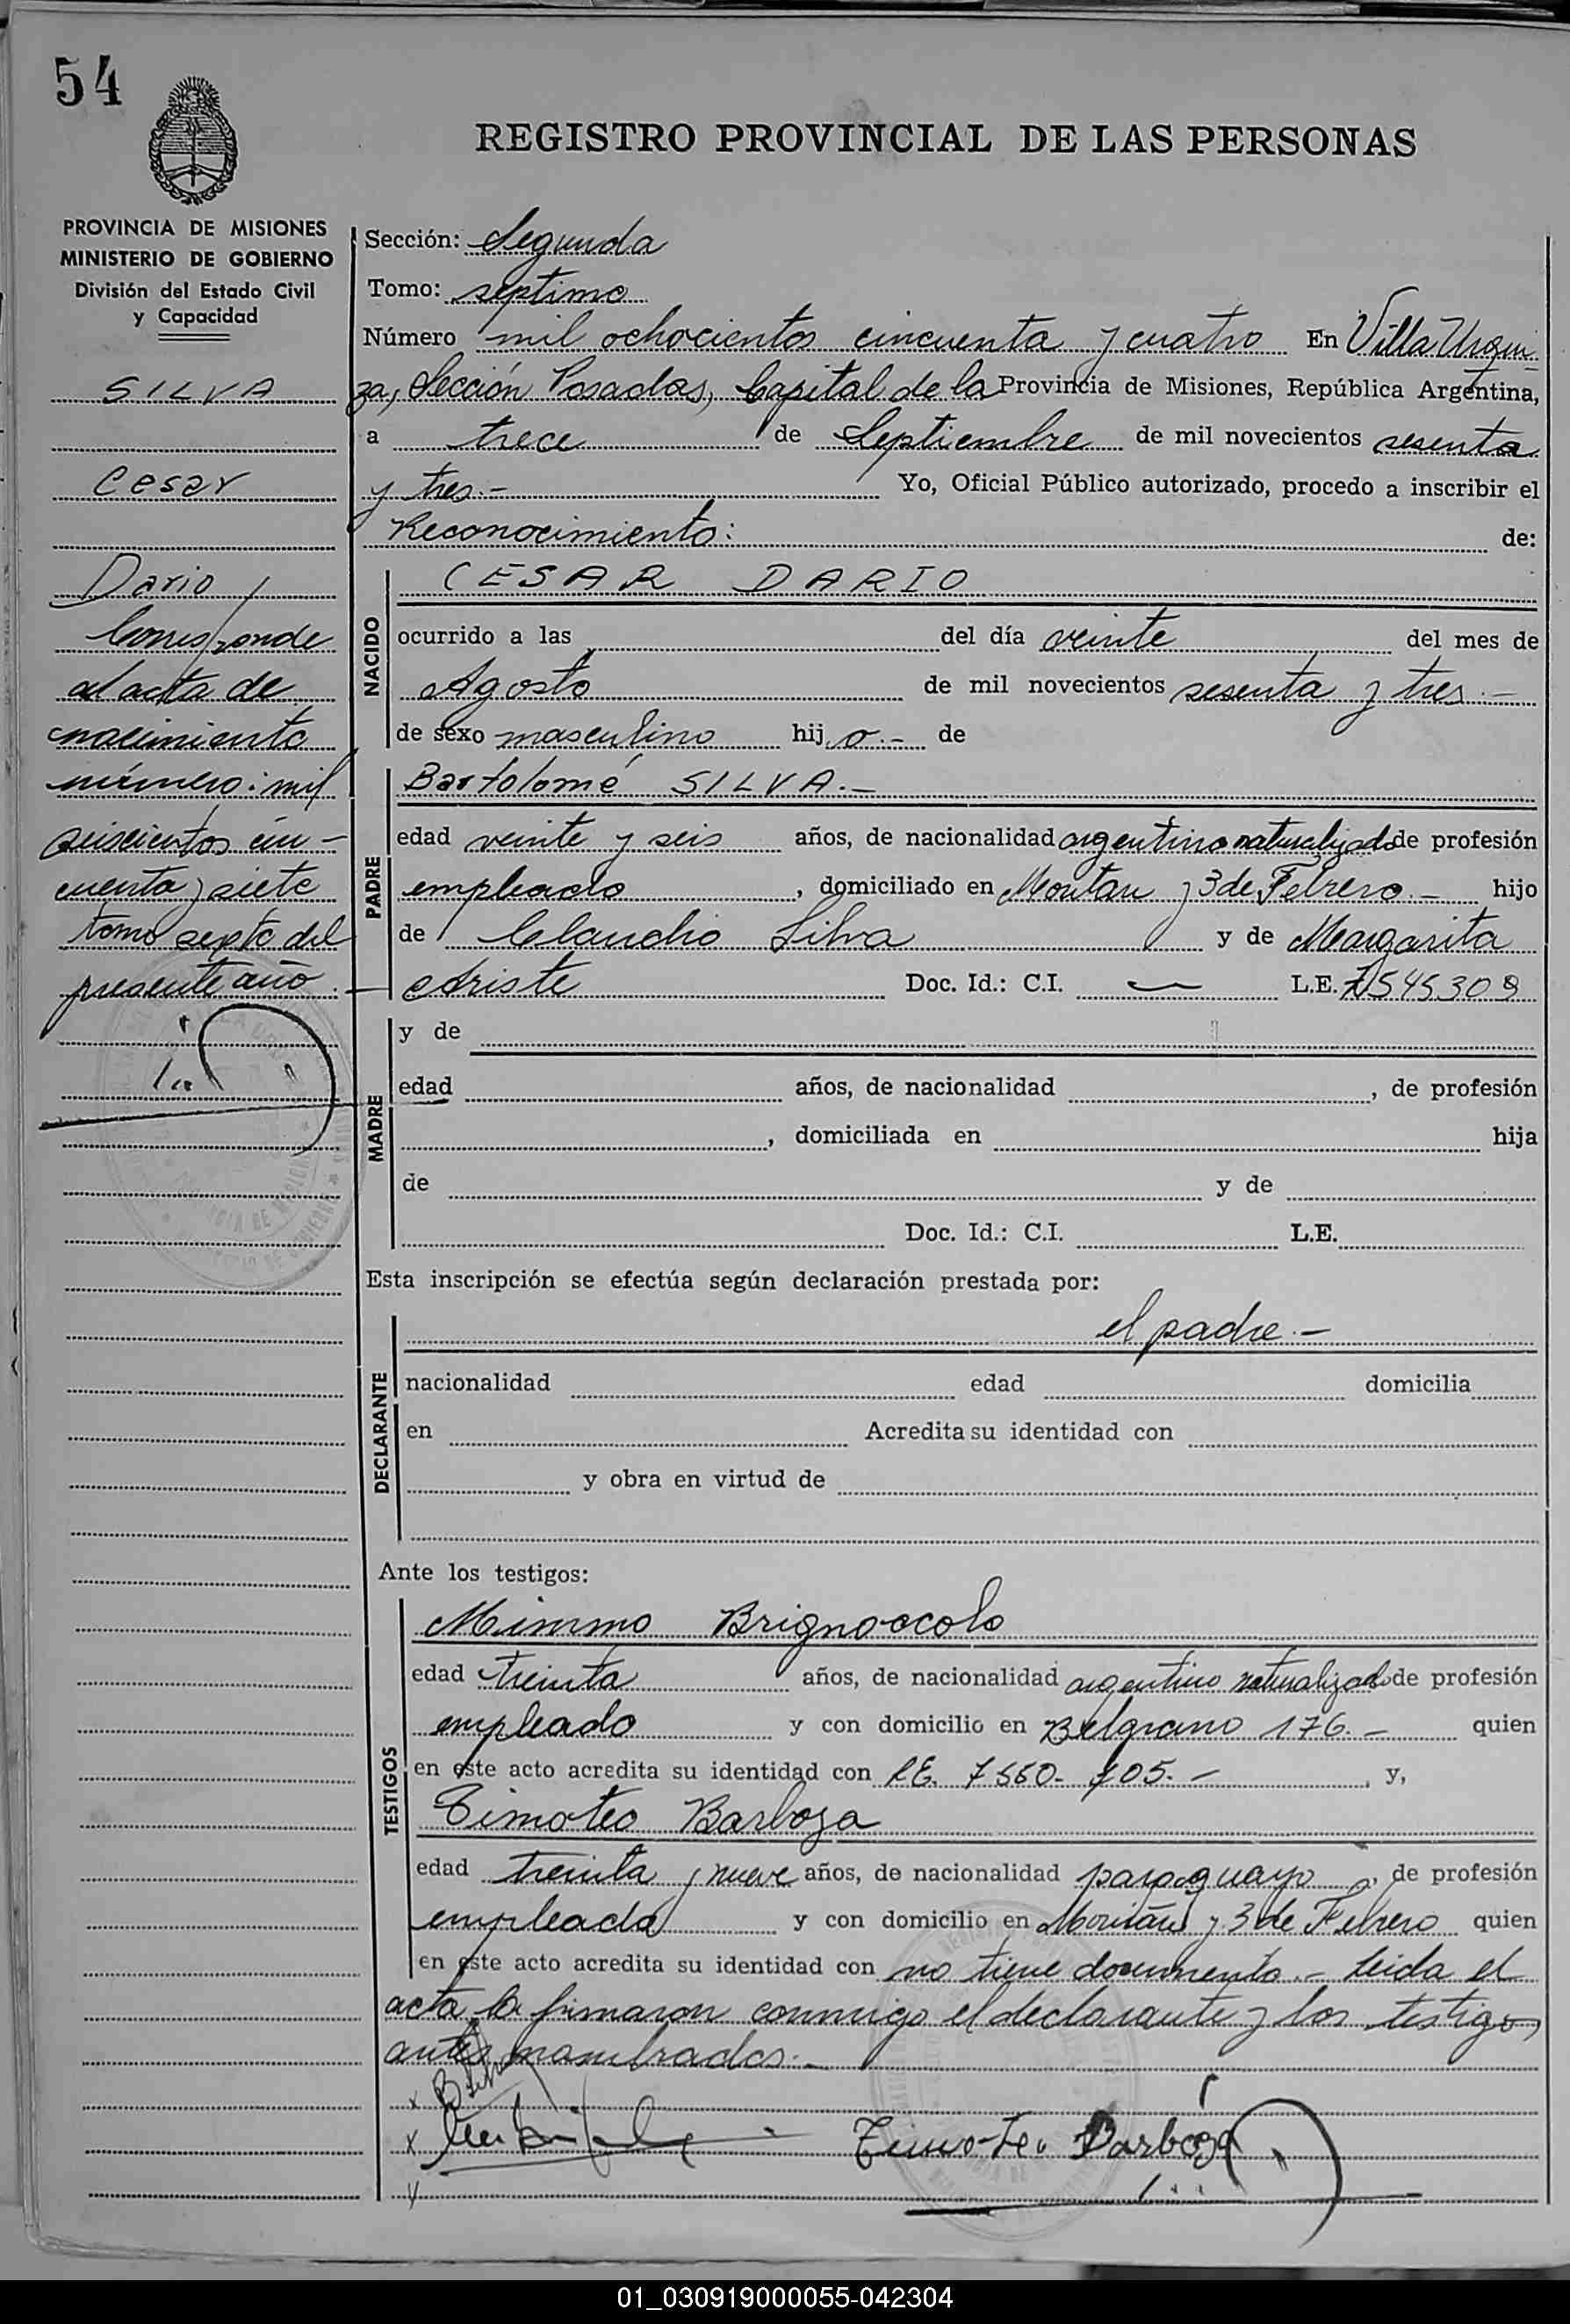 54
REGISTRO PROVINCIAL DE LAS PERSONAS
PROVINCIA DE MISIONES
MINISTERIO DE GOBIERNO
División del Estado Civil
y Capacidad
SILVA
Cesar
Dario
Corresponde
al acta de
nacimiento
número: mil
seiscientos cin-
cuenta y siete
tomo sexto del
presente año
Sección: Segunda
Tomo: septimo
Número mil ochocientos cincuenta y cuatro En Villa Urqui-
za, Sección Posadas, Capital de la Provincia de Misiones, República Argentina,
a trece de Septiembre de mil novecientos sesenta
y tres.- Yo, Oficial Público autorizado, procedo a inscribir el
Reconocimiento: de:
NACIDO
CESAR DARIO
ocurrido a las del día veinte del mes de
Agosto de mil novecientos sesenta y tres.-
de sexo masculino hij o.- de
PADRE
Bartolomé SILVA.-
edad veinte y seis años, de nacionalidad argentino naturalizado de profesión
empleado, domiciliado en y 3 de Febrero.- hijo
de Claudio Silva y de Margarita
Ariste Doc. Id.: C.I. — L.E. 7.545.309
MADRE
y de
edad años, de nacionalidad , de profesión
, domiciliada en hija
de y de
Doc. Id.: C.I. L.E.
Esta inscripción se efectúa según declaración prestada por:
DECLARANTE
el padre.-
nacionalidad edad domicilia
en Acredita su identidad con
y obra en virtud de
Ante los testigos:
TESTIGOS
Mimmo Brignoccolo
edad treinta años, de nacionalidad argentino naturalizado de profesión
empleado y con domicilio en Belgrano 176.- quien
en este acto acredita su identidad con L.E. y,
Timoteo Barboza
edad treinta y nueve años, de nacionalidad paraguayo, de profesión
empleado y con domicilio en y 3 de Febrero quien
en este acto acredita su identidad con no tiene documento.- Leida el
acta la firmaron conmigo el declarante y los testigos
antes nombrados.-
x B Silva
x
Timoteo Barboza
01_030919000055-042304